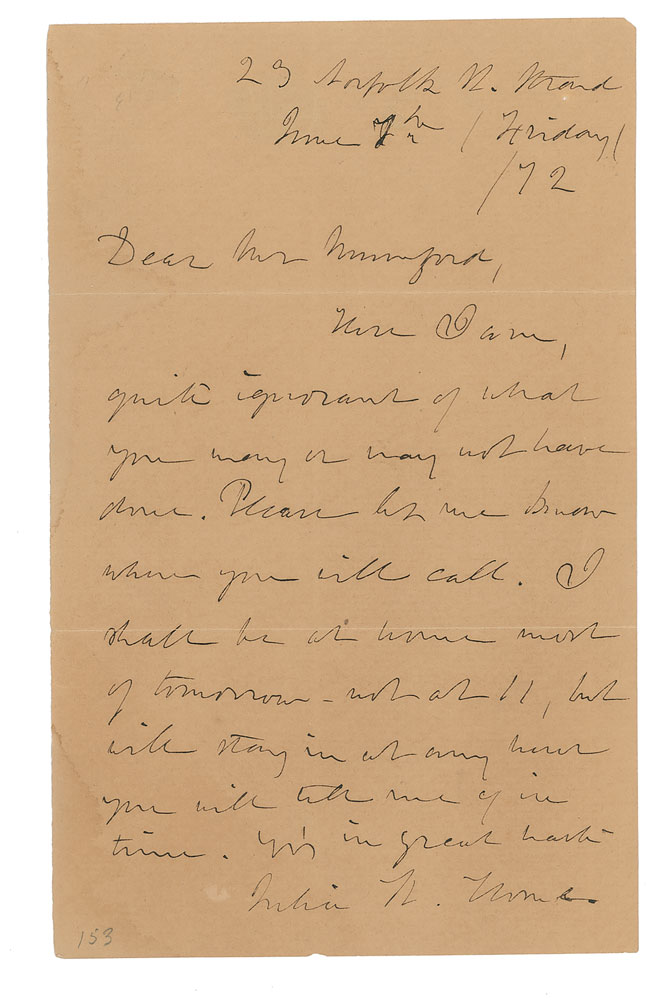 23 Norfolk St. Strand
June 7th / Friday /
/72
Dear Mr Mumford,
Here I am,
quite ignorant of what
you may or may not have
done. Please let me know
when you will call. I
shall be at home most
of tomorrow - not at 11, but
will stay in at any hour
you will tell me of in
time. Yrs in great haste
Julia W. Howe.
153